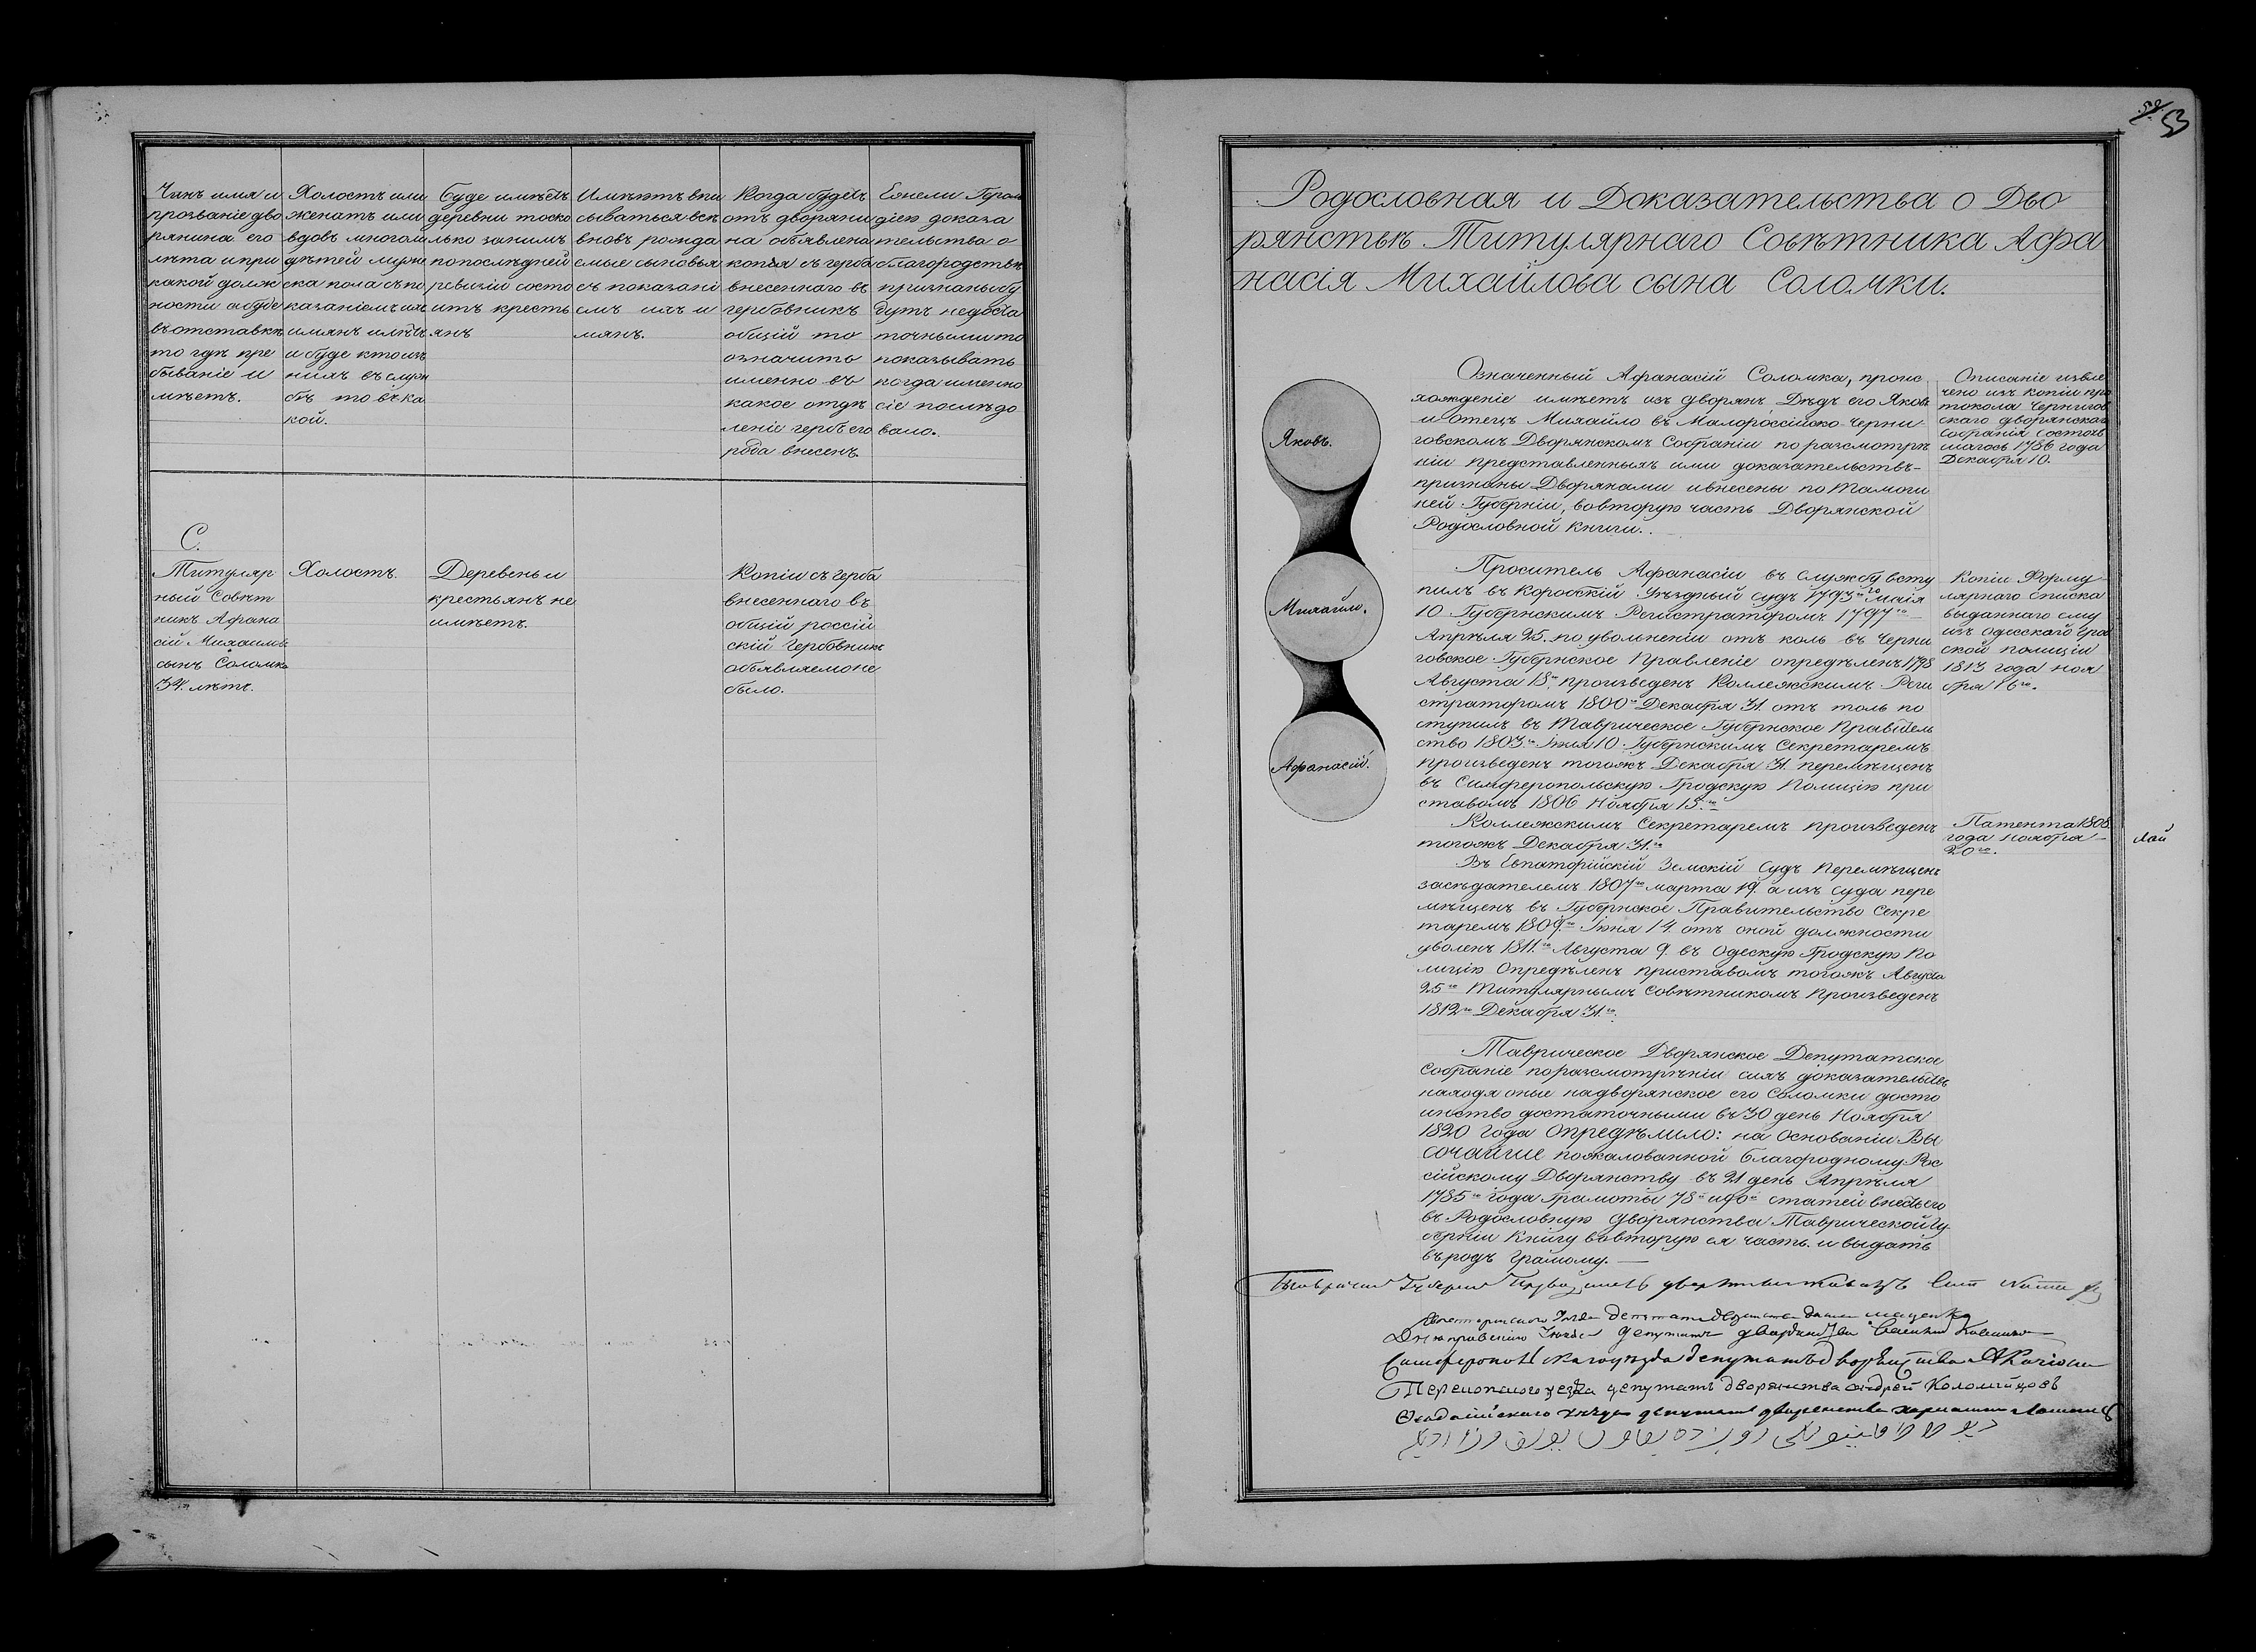 Чинъ имя и
прозваніе дво
рянина его
лѣта и при
какой долж
ности а буде
въ отставкѣ
то гдѣ пре
бываніе и
мѣетъ.
Холостъ или
женатъ или
вдовъ многом
дѣтей муже
ска пола съ по
казаніемъ ихъ
имянъ имѣетъ
и буде кто изъ
нихъ въ служ
бѣ то въ ка
кой.
Буде имѣетъ
деревни то ско
лько за нимъ
по послѣдней
ревизіи состо
итъ кресть
янъ
Имѣютъ впи
сываться всѣ
вновь рожда
емые сыновья
съ показані
емъ ихъ и
мянъ.
Когда будетъ
отъ дворяни
на объявлена
копія съ герба
внесеннаго въ
гербовникъ
общій то
означить
именно въ
какое отдѣ
леніе гербъ его
рода внесенъ
Ежели Герол
діею доказа
тельства о
благородствѣ
признаны бу
дутъ недоста
точными то
показывать
когда именно
сіе послѣдо
вало.
С.
Титуляр
ный Совѣт
никъ Афана
сій Михаиловъ
сынъ Соломка
34. лѣтъ.
Холостъ.
Деревень и
крестьянъ не
имѣетъ.
Копіи съ герба
внесеннаго въ
общій россій
скій Гербовникъ
объявляемо не
было.
53
Родословная и Доказательства о Дво
рянствѣ Титулярнаго Совѣтника Афа
насія Михайлова сына Соломки.
Яковъ.
Михайло.
Афанасій.
Означенный Афанасій Соломка, проис
хожденіе имѣетъ изъ дворянъ Дѣдъ его Яковъ
и отецъ Михайло въ Малороссійско-Черни
говскомъ Дворянскомъ Собраніи по разсмотрѣ
ніи представленныхъ ими доказательствъ-
признаны Дворянами и внесены по Тамош
ней Губерніи, во вторую часть Дворянской
Родословной книги.
Описаніе извле
чено изъ копіи про
токола Чернигов
скаго дворянскаго
собранія состояв
шагося 1786 года
Декабря 10.
Проситель Афанасіи въ службу всту
пилъ въ Коробскій Уѣздный судъ 1793го Маія
10 Губернскимъ Регистраторомъ 1797го
Апрѣля 25. по увольненіи отъ коль въ Черни
говское Губернское Правленіе опредѣленъ 1798
Августа 18го произведенъ Коллежскимъ Реги
страторомъ 1800го Декабря 31. отъ толь по
ступилъ въ Таврическое Губернское Правитель
ство 1803го Іюня 10. Губернскимъ Секретаремъ
произведенъ тогожъ Декабря 31. перемѣщенъ
въ Симферопольскую Градскую Полицію при
ставомъ 1806 Ноября 13.го
Копіи Форму
лярнаго списка
выданнаго ему
изъ Одесскаго Град
ской полиціи
1813 года ноя
бря 16го.
Коллежскимъ Секретаремъ произведенъ
тогожъ Декабря 31.го
Патента 1808.
года ноября
20го.
Въ Евпаторійскій Земскій судъ перемѣщенъ
засѣдателемъ 1807го марта 19. а изъ суда пере
мѣщенъ въ Губернское Правительство Секре
таремъ 1809.го Іюня 14. отъ оной должности
уволенъ 1811.го Августа 9. въ Одескую Градскую По
лицію Опредѣленъ приставомъ тогожъ Августа
25го Титулярнымъ Совѣтникомъ произведенъ
1812го Декабря 31.го
Таврическое Дворянское Депутатское
Собраніе по разсмотрѣніи сихъ доказательствъ
находя оные на дворянское его Соломки досто
инство достаточными въ 30 день Ноября
1820 года опредѣлило: на основаніи Вы
сочайше пожалованной благородному Рос
сійскому Дворянству въ 21 день Апрѣля
1785го года Грамоты 78й и 90й статей внесть его
въ Родословную дворянства Таврической Гу
берніи Книгу во вторую ея часть. и выдать
въ родъ грамоту.
Таврической Губерніи
депутатъ дворянства
Днѣпровскаго Уѣзда депутатъ дворянства
Симферопольскаго уѣзда депутатъ дворянства
Перекопскаго уезда депутатъ дворянства андрей Коломійцовъ
Ѳеодосійскаго уѣзда депутатъ дворянства